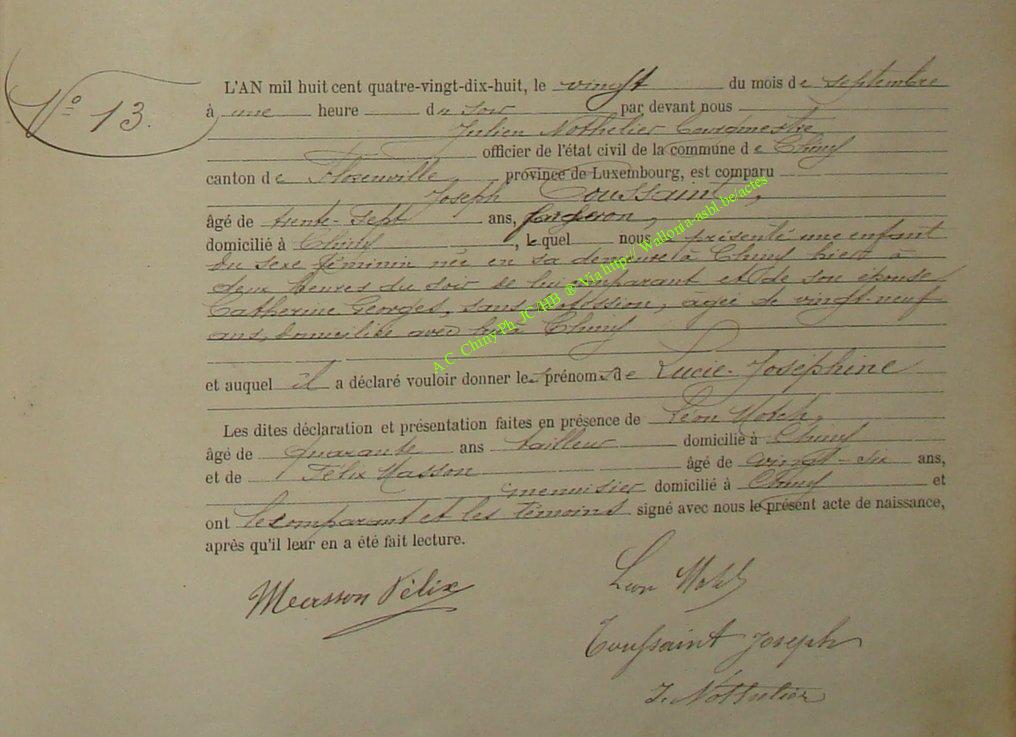 Nº 13.
L'AN mil huit cent quatre-vingt-dix-huit, le vingt du mois de septembre
à une heure du soir par devant nous
Julien Nothelier Bourgmestre
officier de l'état civil de la commune de Chiny
canton de Florenville, province de Luxembourg, est comparu
Joseph Toussaint,
âgé de trente-sept ans, forgeron,
domicilié à Chiny, lequel nous a présenté une enfant
du sexe féminin née en sa demeure à Chiny hier à
deux heures du soir de lui comparant et de son épouse
Catherine Georges, sans profession, âgée de vingt-neuf
ans, domiciliée avec lui à Chiny
et auquel il a déclaré vouloir donner les prénoms de Lucie-Joséphine
Les dites déclaration et présentation faites en présence de Léon Motch,
âgé de quarante ans tailleur domicilié à Chiny
et de Félix Masson âgé de vingt-six ans,
menuisier domicilié à Chiny et
ont le comparant et les témoins signé avec nous le présent acte de naissance,
après qu'il leur en a été fait lecture.
Masson Félix
Léon Motch
Toussaint Joseph
J. Nothelier
A.C. Chiny Ph JC/HB ® Via http:// Wallonia-asbl.be/actes